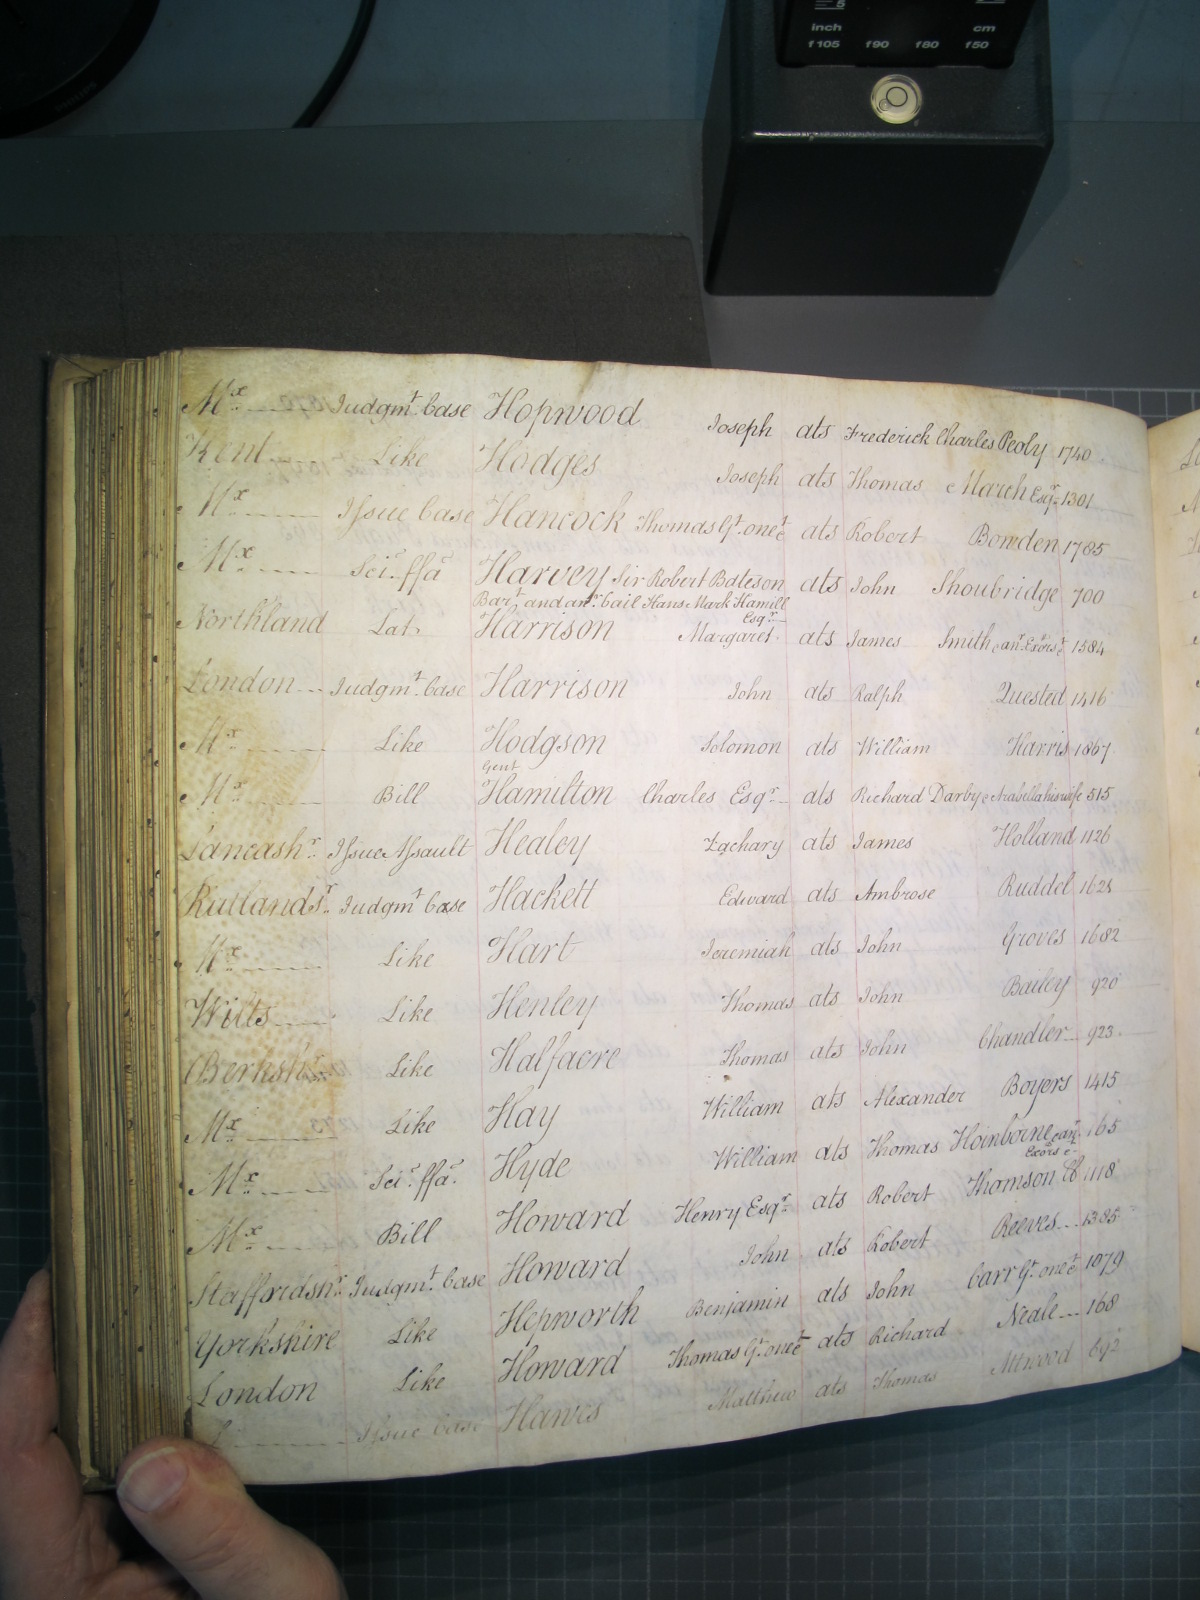 5
inch cm
f105 f90 f80 f50
PHILIPS
Mx Judgmt. Case Hopwood Joseph ats Frederick Charles Peoly 1740
Kent Like Hodges Joseph ats Thomas March Esqr. 1301
Mx Issue Case Hancock Thomas Gt. one &c ats Robert Bowden 1785
Mx Sci. ffa Harvey Sir Robert Bateson ats John Shoubridge 700
Bart. and anr. bail Hans Mark Hamill Esqr.
Northland Lat. Harrison Margaret ats James Smith anr. Exors &c 1584
London Judgmt. Case Harrison John ats Ralph Quested 1416
Mx Like Hodgson Solomon ats William Harris 1867
Gent
Mx Bill Hamilton Charles Esqr. ats Richard Darby & Arabella his wife 515
Lancashr. Issue Assault Healey Zachary ats James Holland 1126
Rutlandsr. Judgmt. Case Hackett Edward ats Ambrose Ruddel 1624
Mx Like Hart Jeremiah ats John Groves 1682
Wilts Like Henley Thomas ats John Bailey 920
Berkshr. Like Halfacre Thomas ats John Chandler 923
Mx Like Hay William ats Alexander Boyers 1415
Mx Sci. ffa. Hyde William ats Thomas Hoinborne anr. 165
Exors &c
Mx Bill Howard Henry Esqr. ats Robert Thomson 1118
Staffordshr. Judgmt. Case Howard John ats Robert Reeves 1385
Yorkshire Like Hepworth Benjamin ats John Carr Gt. one &c 1079
London Like Howard Thomas Gt. one &c ats Richard Neale 168
Issue Case Hawes Matthew ats Thomas Attwood 692